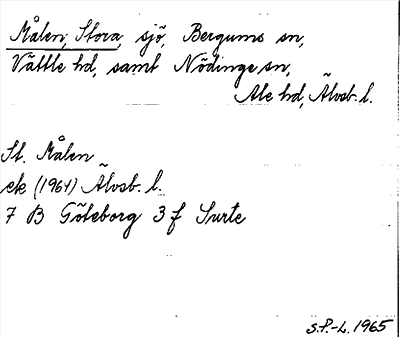 Målen, Stora, sjö, Bergums sn,
Vättle hd, samt Nödinge sn,
Ale hd, Älvsb. l.
St. Målen
ek (1961) Älvsb. l.
7 B Göteborg 3 f Surte
S.P.-L. 1965